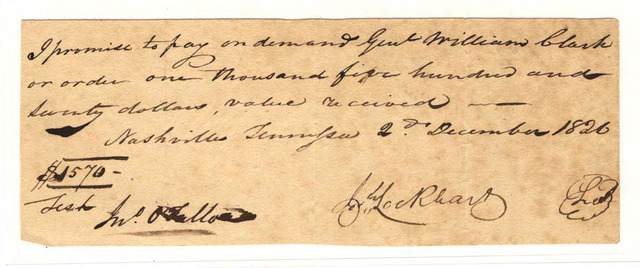 I promise to pay on demand Genl William Clark
or order one thousand five hundred and
seventy dollars, value received —
Nashville Tennessee 2d. December 1826
$1570 -
Test
Jno. O'Fallon
Lockhart